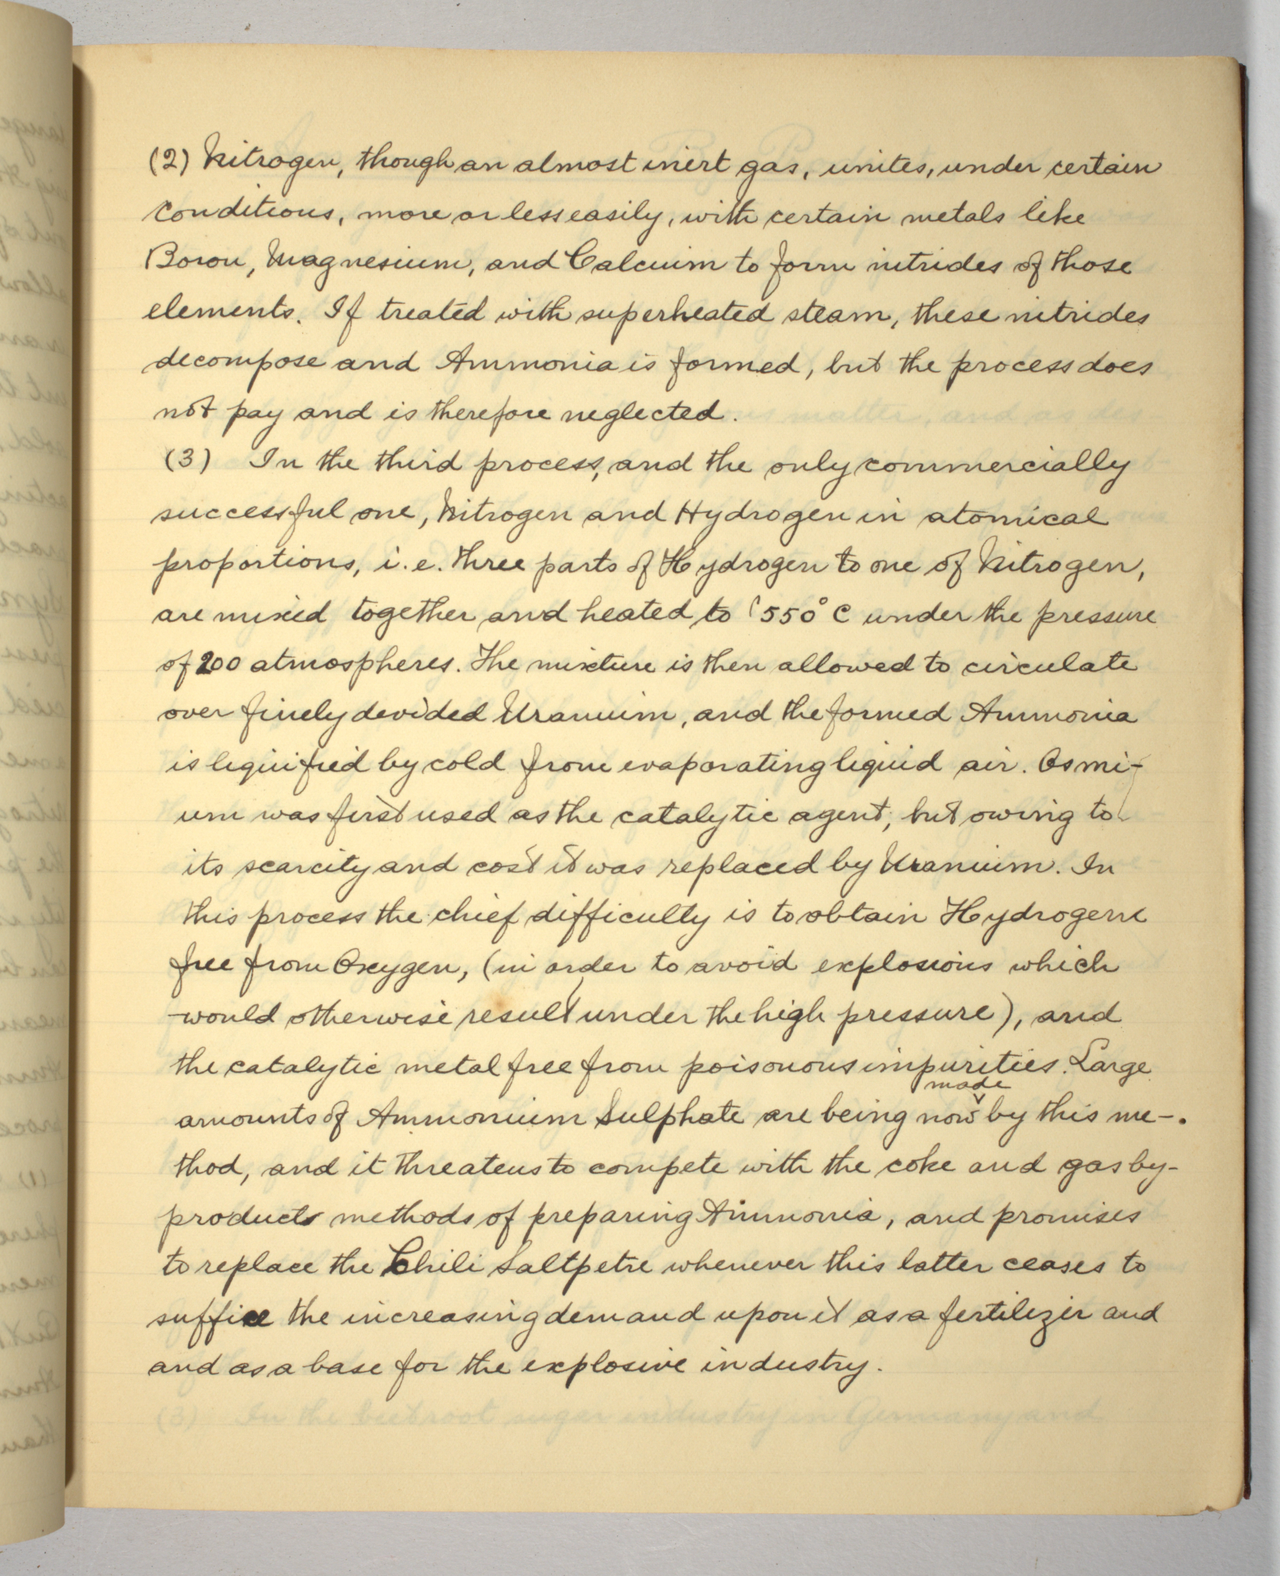 (2) Nitrogen, though an almost inert gas, unites, under certain
conditions, more or less easily, with certain metals like
Boron, Magnesium, and Calcuim to form nitrides of those
elements. If treated with superheated steam, these nitrides
decompose and Ammonia is formed, but the process does
not pay and is therefore neglected.
(3) In the third process, and the only commercially
successful one, Nitrogen and Hydrogen in atomical
proportions, i.e. three parts of Hydrogen to one of Nitrogen,
are mixed together and heated to 550° C under the pressure
of 200 atmospheres. The mixture is then allowed to circulate
over finely devided Uranium, and the formed Ammonia
is liquified by cold from evaporating liquid air. Osmi-
um was first used as the catalytic agent, but owing to
its scarcity and cost it was replaced by Uranium. In
this process the chief difficulty is to obtain Hydrogen
free from Oxygen, (in order to avoid explosions which
would otherwise result under the high pressure), and
the catalytic metal free from poisonous impurities. Large
made
amounts of Ammonium Sulphate are being now by this me-
thod, and it threatens to compete with the coke and gas by-
products methods of preparing Ammonia, and promises
to replace the Chili Saltpetre whenever this latter ceases to
suffice the increasing demand upon it as a fertilizer and
and as a base for the explosive industry.
(3) In the beetroot sugar industry in Germany and